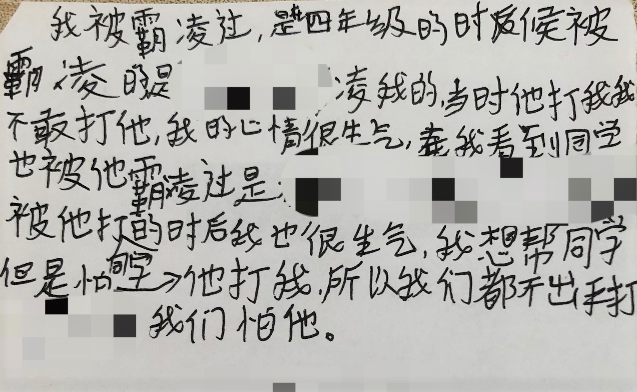 我被霸凌过,是四年级的时后候被
霸凌的是 凌我的,当时他打我我
不敢打他,我的心情很生气,在我看到同学
也被他霸凌过是
被他打的时后我也很生气,我想帮同学
但是怕同学他打我,所以我们都不出手打
我们怕他。